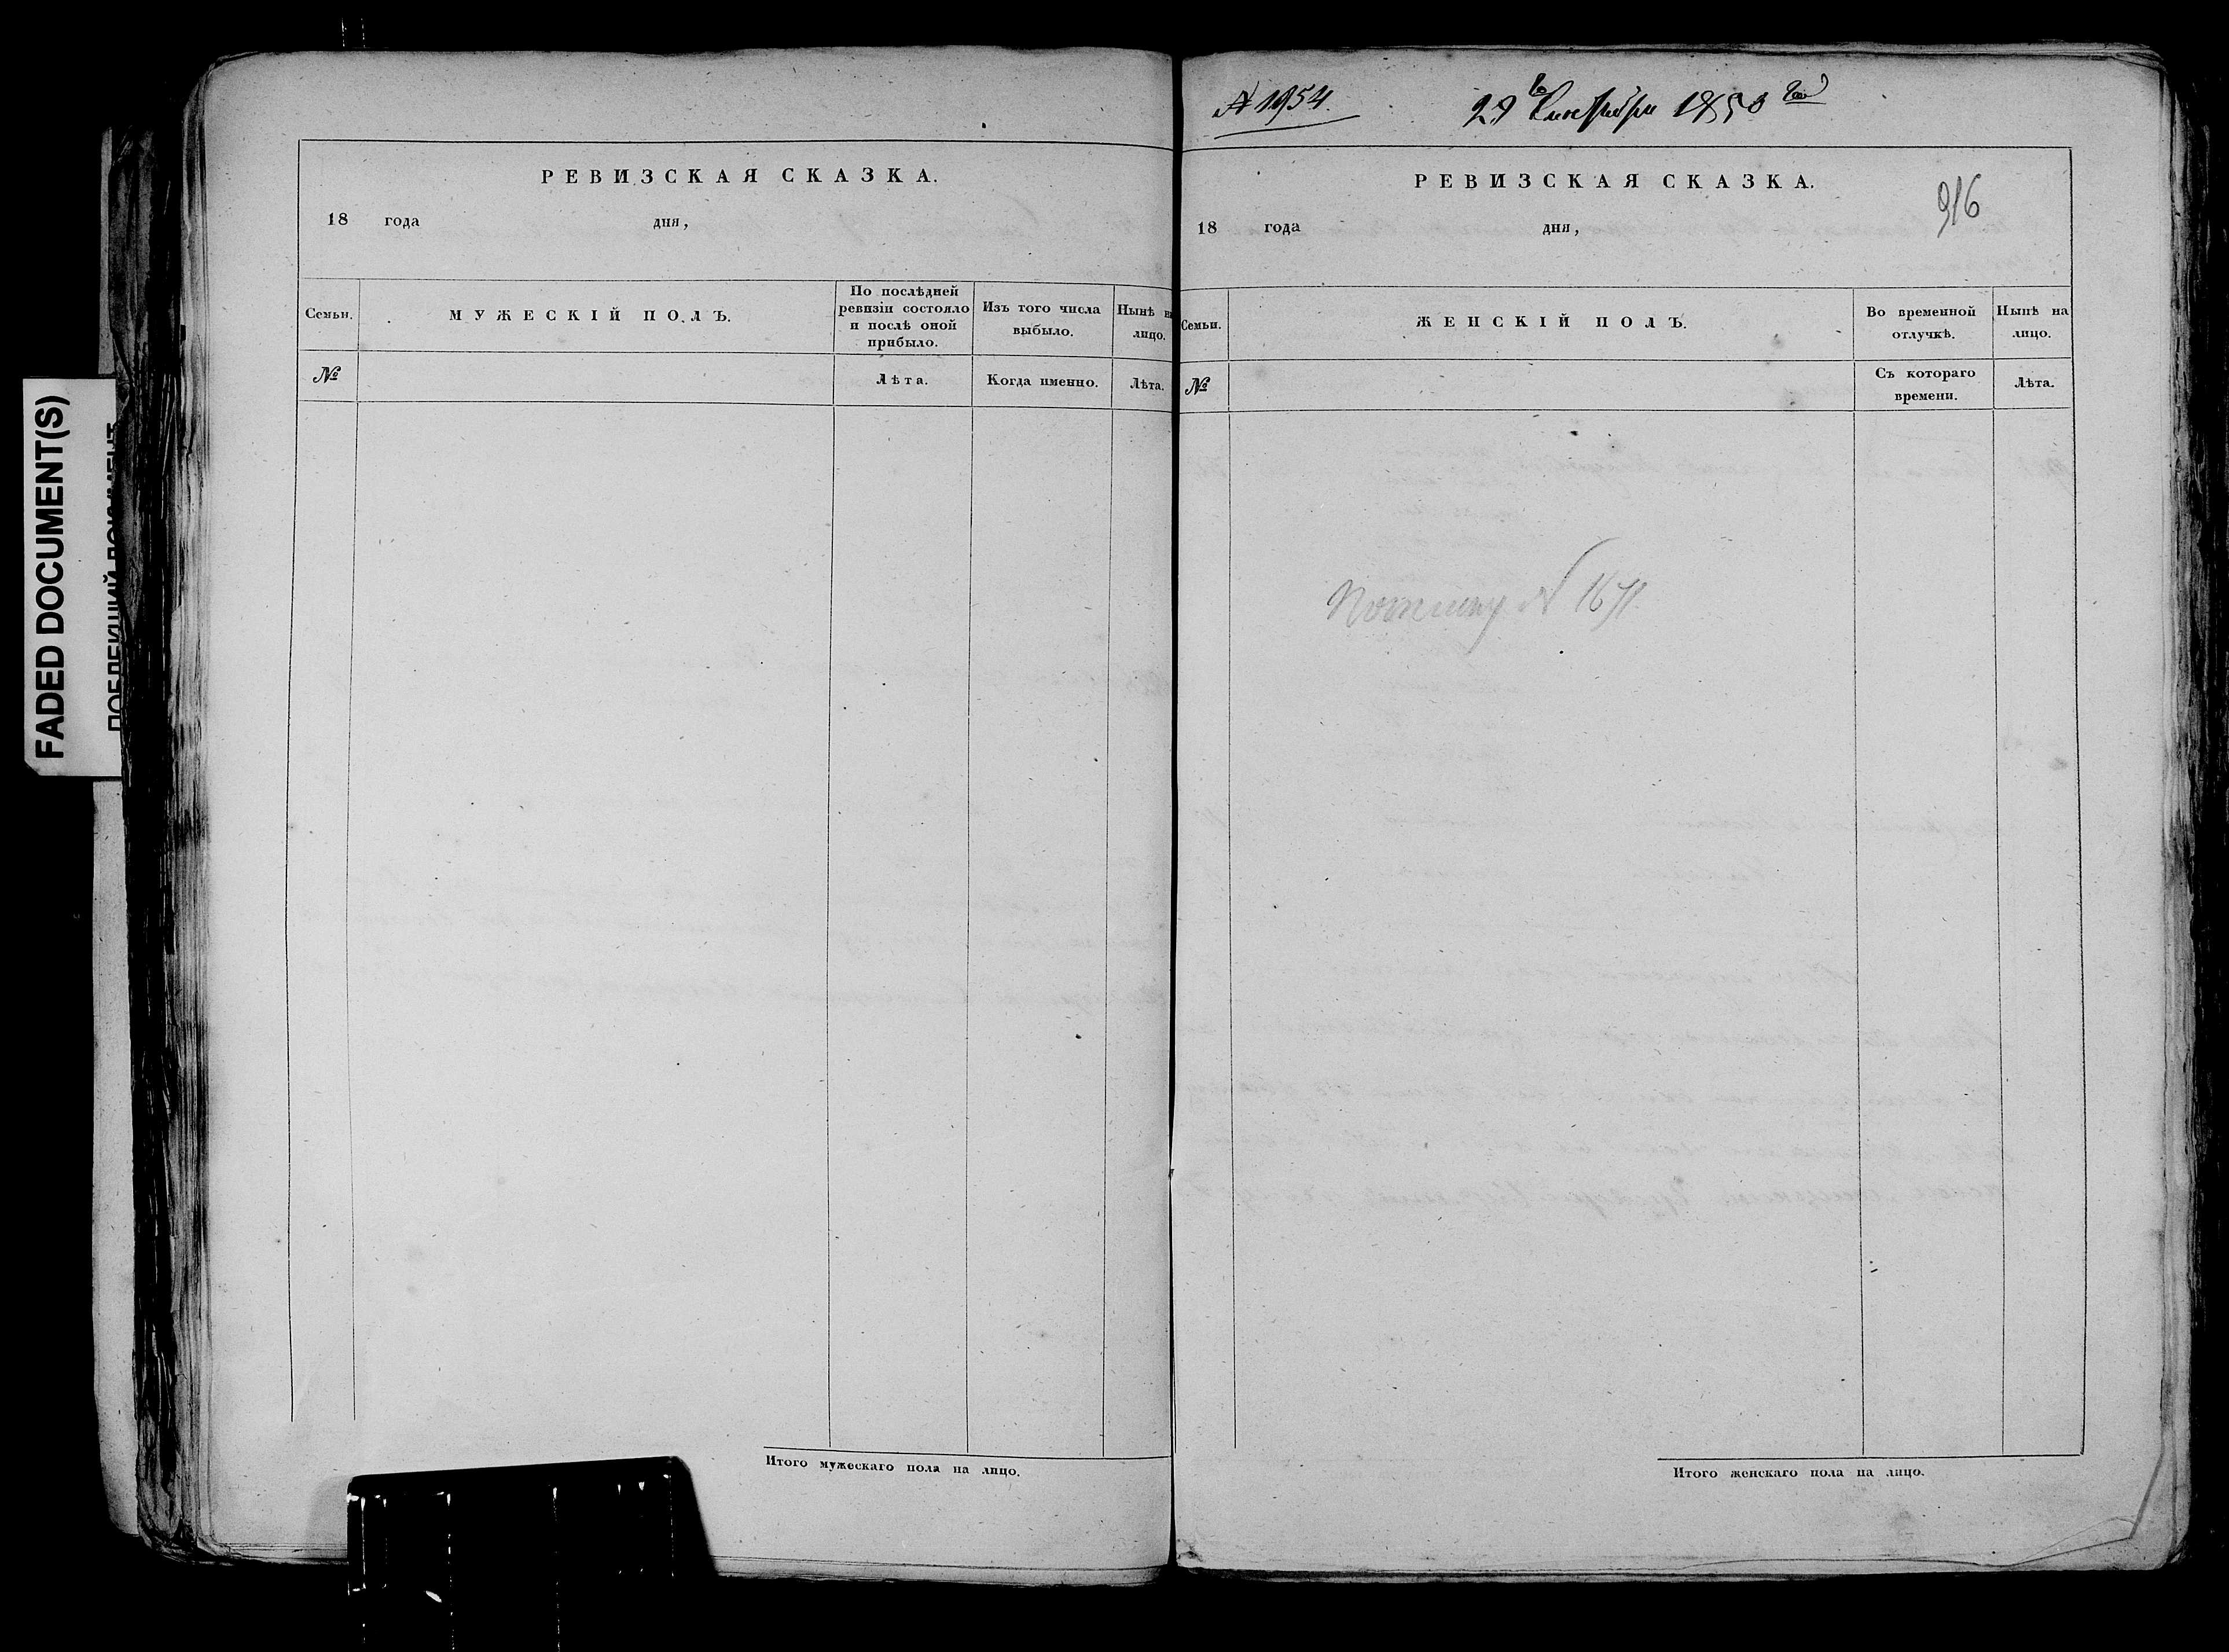 FADED DOCUMENT(S)
РЕВИЗСКАЯ СКАЗКА.
18 года дня,
Семьи. МУЖЕСКІЙ ПОЛЪ. По послѣдней ревизіи состояло и послѣ оной прибыло. Изъ того числа выбыло. Нынѣ на лицо.
№ Лѣта. Когда именно. Лѣта.
Итого мужескаго пола на лицо.
№ 1954.
29 1850
РЕВИЗСКАЯ СКАЗКА.
916
18 года дня,
Семьи. ЖЕНСКІЙ ПОЛЪ. Во временной отлучкѣ. Нынѣ на лицо.
№ Съ котораго времени. Лѣта.
№ 1671
Итого женскаго пола на лицо.